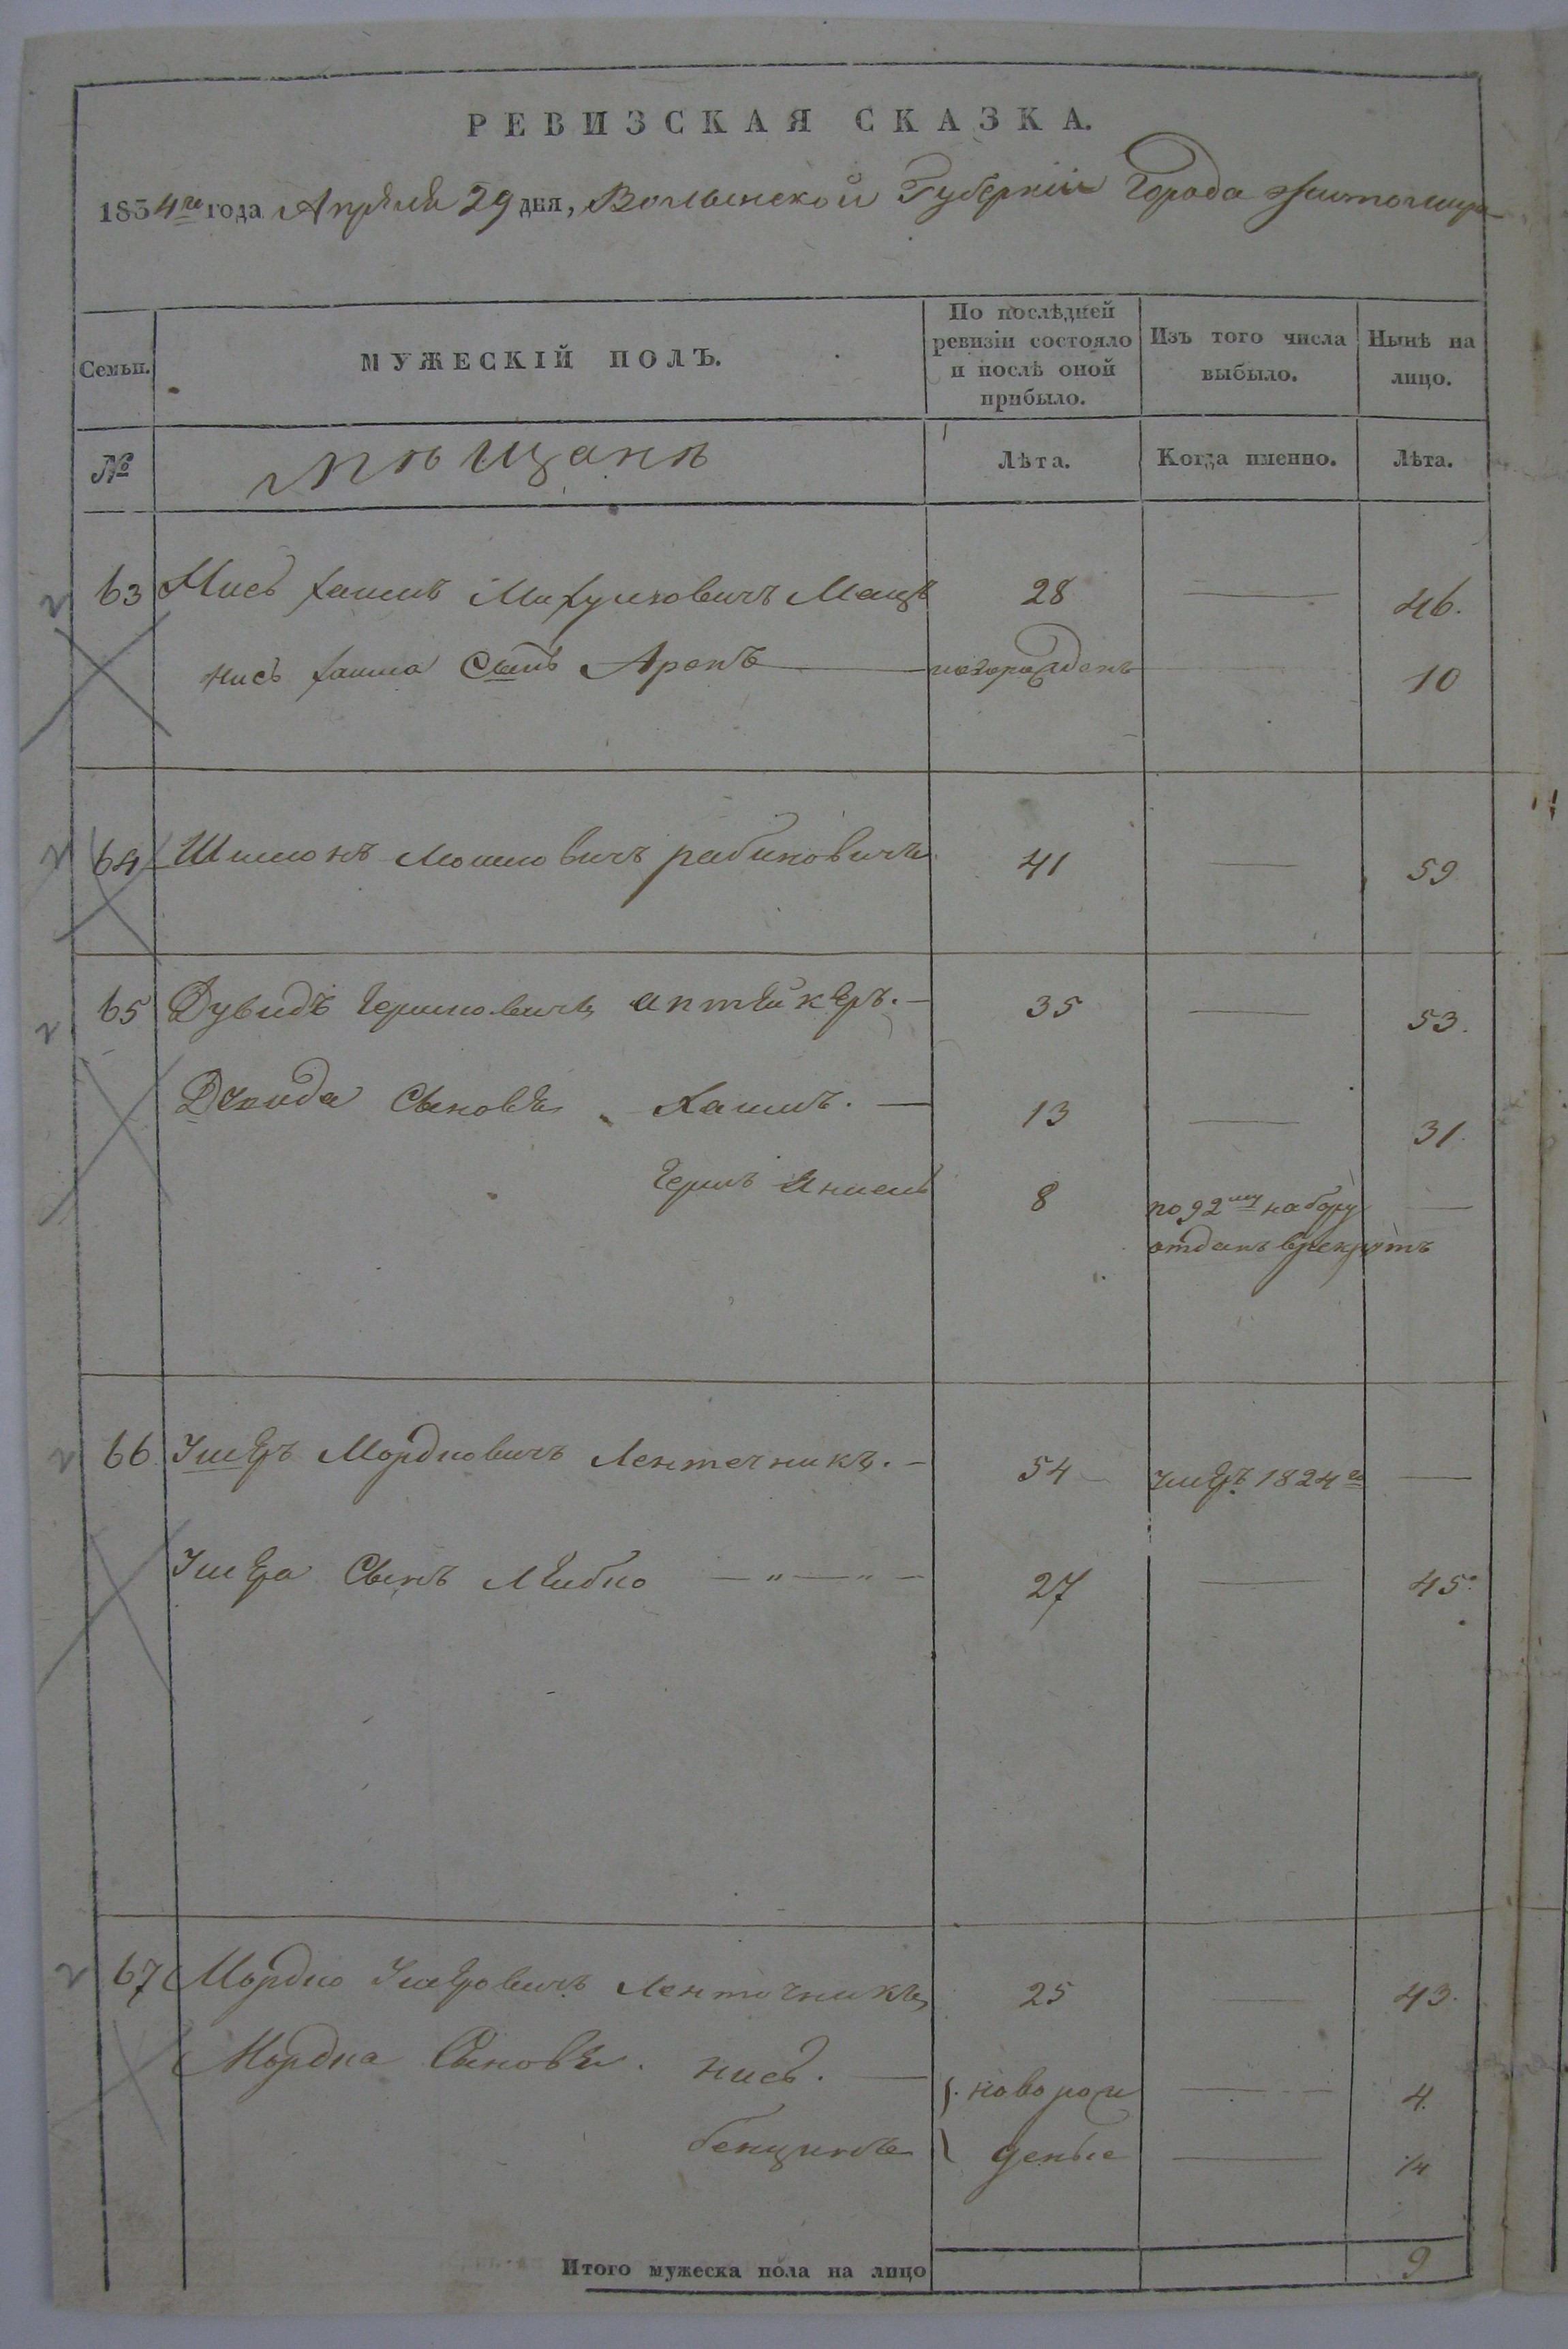 РЕВИЗСКАЯ СКАЗКА.
1834го года Апреля 29 дня, Волынской Губернии Города Житомира
Семьи.
МУЖЕСКІЙ ПОЛЪ.
По послѣдней ревизіи состояло и послѣ оной прибыло.
Изъ того числа выбыло.
Нынѣ на лицо.
№
Мѣщанѣ
Лѣта.
Когда именно.
Лѣта.
2 63 Нисъ Хаимъ 28 46.
Нисъ Хаима Сынъ Аронъ новорожденъ 10
2 64 Шимонъ Мошковичъ рабиновичъ 41 59
2 65 Дувидъ Гершковичъ аптейкеръ. 35 53.
Дувида Сыновя Хаимъ. 13 31.
Гершъ 8 по 92му набору
отданъ врекруты
2 66. Умеръ Мордковичъ Лентечникъ. 54 умеръ 1824го
Сынъ Лейбко 27 45.
2 67 Мордко Ленточникъ 25 43.
Мордка Сыновя. Нисъ. новорож 4.
Бенционъ деные 14
Итого мужеска пола на лицо 9